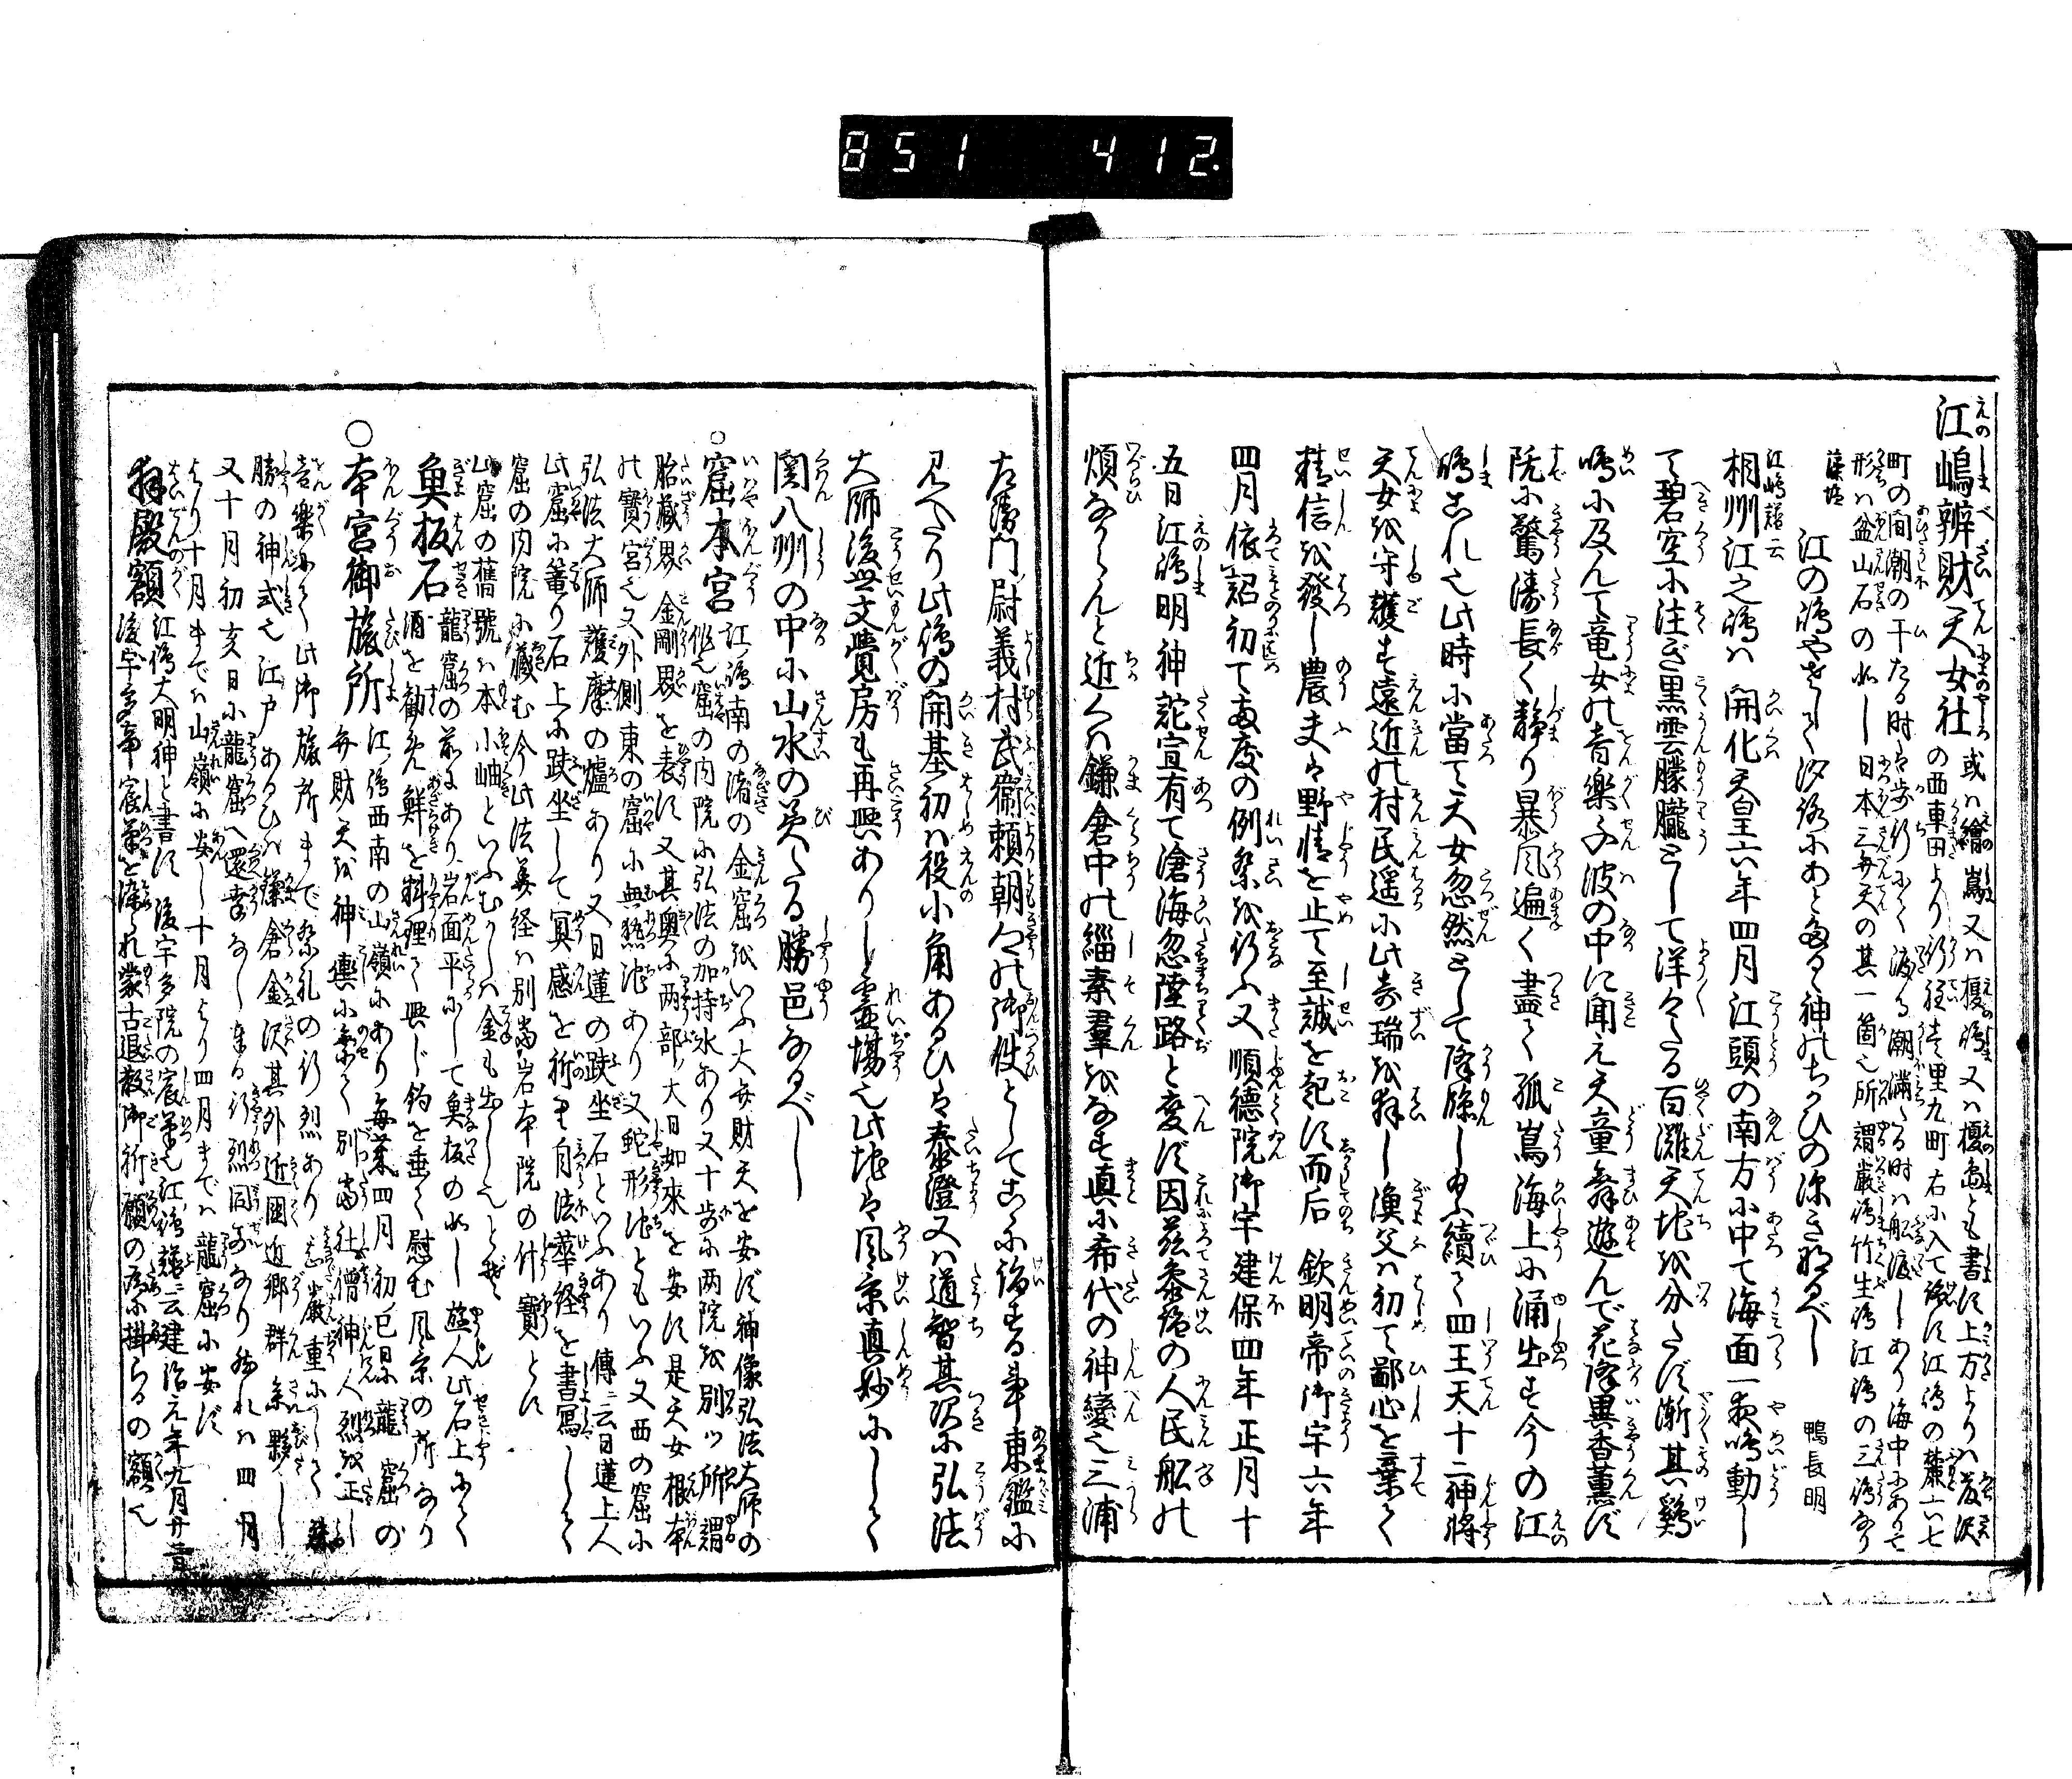 851 412.
江嶋辨財天女社 或ハ繪嶌又ハ榎嶋又ハ榎島とも書す上方よりハ藤沢
の西車田より行程壱里九町右に入て詣す江嶋の麓六七
町の間潮の干たる時ハ歩行にて渡る潮満たる時ハ舩渡しあり海中にありて
形ハ盆山石の如し日本三弁天の其一箇也所謂厳嶋竹生嶋江嶋の三嶋なり
江の嶋やさして汐路にあとたるゝ神のちかひの深きなるべし 鴨長明
江嶋譜云
相州江之嶋ハ開化天皇六年四月江頭の南方に中て海面一夜鳴動し
て碧空に注ぎ黒雲朦朧として洋々たる百灘天地を分たず漸其鷄
鳴に及んで竜女の音楽ハ波の中に聞え天童舞遊んで花降異香薫ず
既に驚濤長く静り暴風遍く盡て孤嶌海上に涌出す今の江
嶋これ也此時に當て天女忽然として降臨し玉ふ續て四王天十二神将
天女を守護す遠近の村民遥に此奇瑞を拜し漁父ハ初て鄙心を棄て
精信を發し農夫ハ野情を止て至誠を起す而后 欽明帝御宇六年
四月依詔初て両度の例祭を行ふ又順徳院御宇建保四年正月十
五日江嶋明神託宣有て滄海忽陸路と変ず因茲参詣の人民舩の
煩なからんと近くハ鎌倉中の緇素羣をなす真に希代の神變也三浦
左衛門尉義村武衞頼朝公の御使としてこゝに詣する事東鑑に
見へたり此嶋の開基初ハ役小角あるひハ泰澄又ハ道智其次に弘法
大師後世文覺房も再興ありし霊場也此地ハ風京真妙にして
関八州の中に山水の美たる勝邑なるべし
○窟本宮 江嶋南の渚の金窟をいふ大弁財天を安ず神像弘法大師の
作也窟の内院に弘法の加持水あり又十歩に两院を別ツ所謂
胎蔵界金剛界を表す又其奥に两部ノ大日如來を安す是天女根本
の寳宮也又外側東の窟に無熱池あり又蛇形池ともいふ又西の窟に
弘法大師護摩の爐あり又日蓮の趺坐石といふあり傳ニ云日蓮上人
此窟に篭り石上に趺坐して冥感を祈て自法華経を書寫して
窟の内院に蔵む今此法華経ハ別當岩本院の什寳とす
此窟の舊號ハ本小岫といふむかしハ金も出しと也
魚板石 龍窟の前にあり岩面平にして魚板の如し遊人此石上にて
酒を勧め鮮を料理て興じ釣を垂て慰む風京の所なり
○本宮御旅所 江嶋西南の山嶺にあり毎歳四月初ノ巳日に龍窟の
弁財天を神輿に乗て別當社僧神人烈を正し
音樂にて此御旅所まで祭礼の行烈あり厳重にして
勝の神式也江户あるひハ鎌倉金沢其外近國近郷群参夥し
又十月初亥日に龍窟へ還幸なし奉る行烈同前なり然れハ四月
より十月までハ山嶺に安し十月より四月までハ龍窟に安ず
拜殿額 江嶋大明神と書す 後宇多院の宸筆也江嶋譜ニ云建治元年九月
後宇多帝宸筆を染られ蒙古退散御祈願の為に掛らるの額也